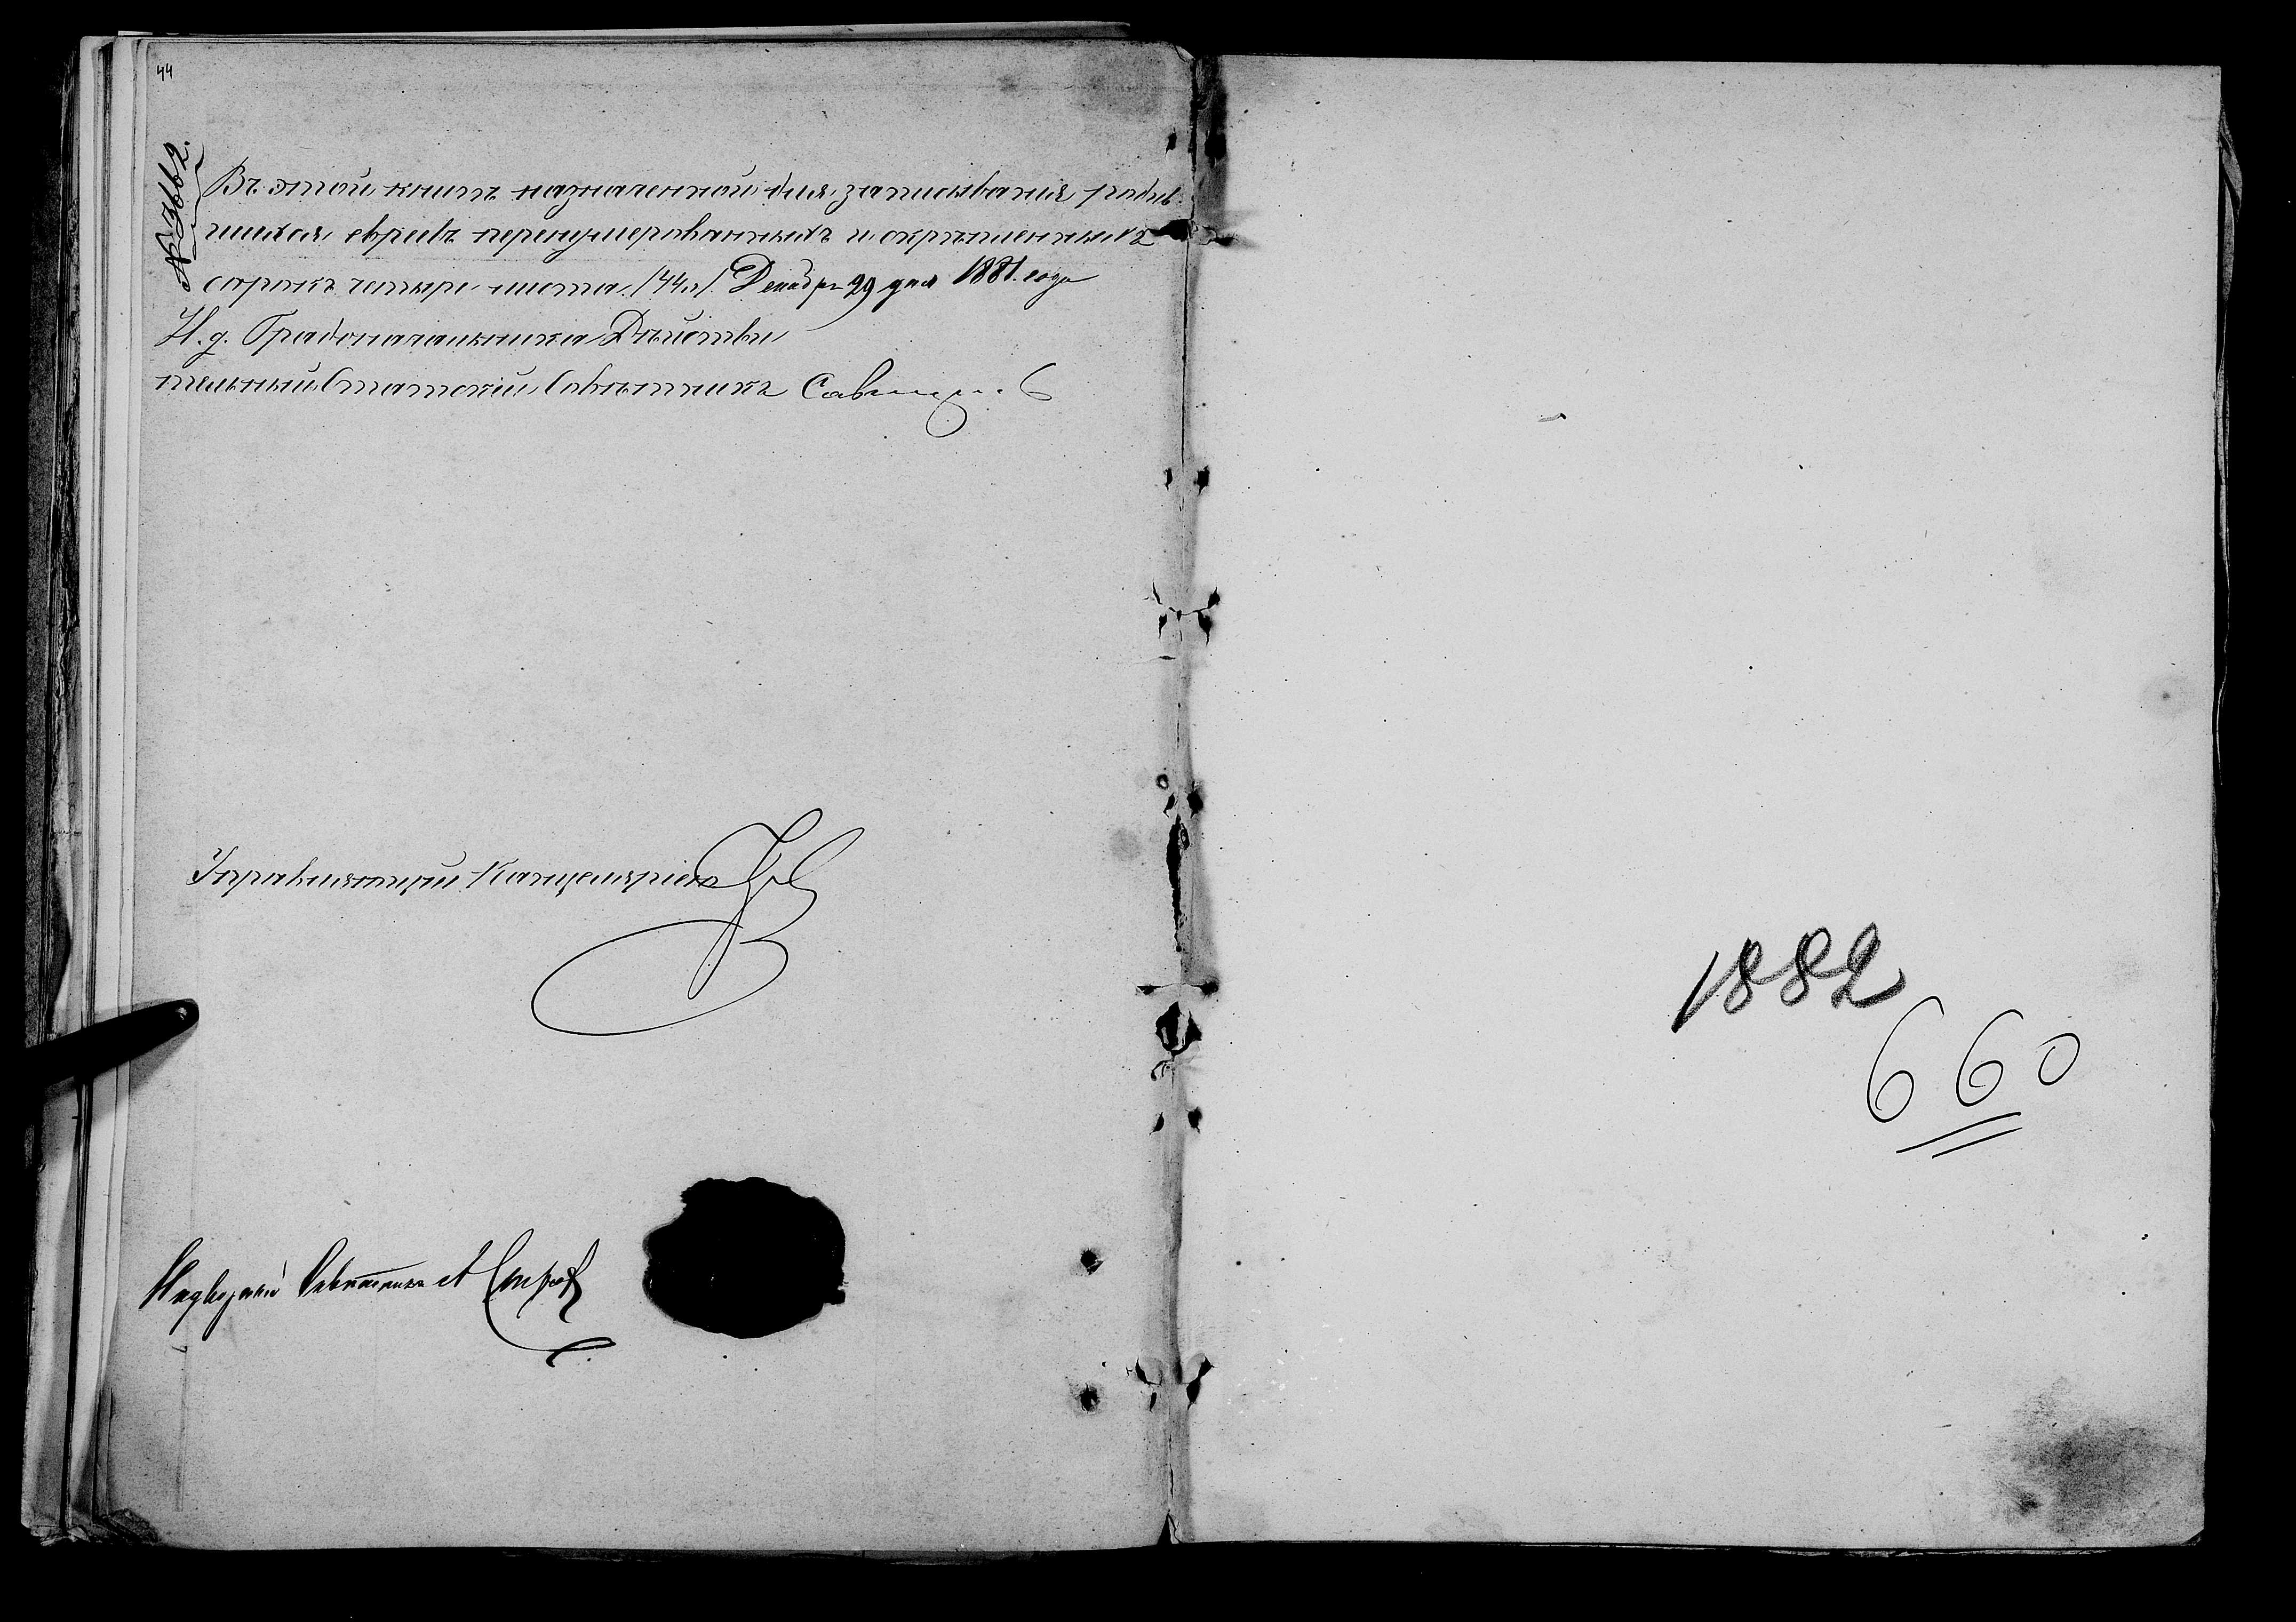 44
№ 3662.
Въ этой книгѣ назначенной для записыванія родив-
шихся евреевъ перенумерованныхъ и скрѣпленныхъ
сорокъ четыре листа (44 л) Декабря 29 дня 1881 года
И. д. Градоначальника Дѣйстви
тельный Статскій Совѣтникъ
Управляющій Канцеляріею
Надворный Совѣтникъ А
1882
660